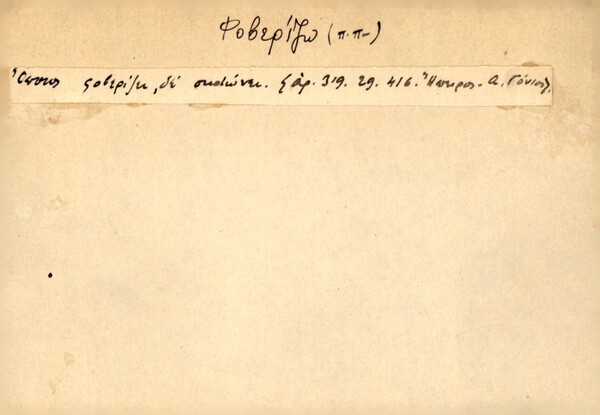 Φοβερίζω (π.π-)
Ὅποιος φοβερίζει, δέ σκοτώνει. ξ ἀρ. 319. 29. 416. Ἤπειρος - Α.